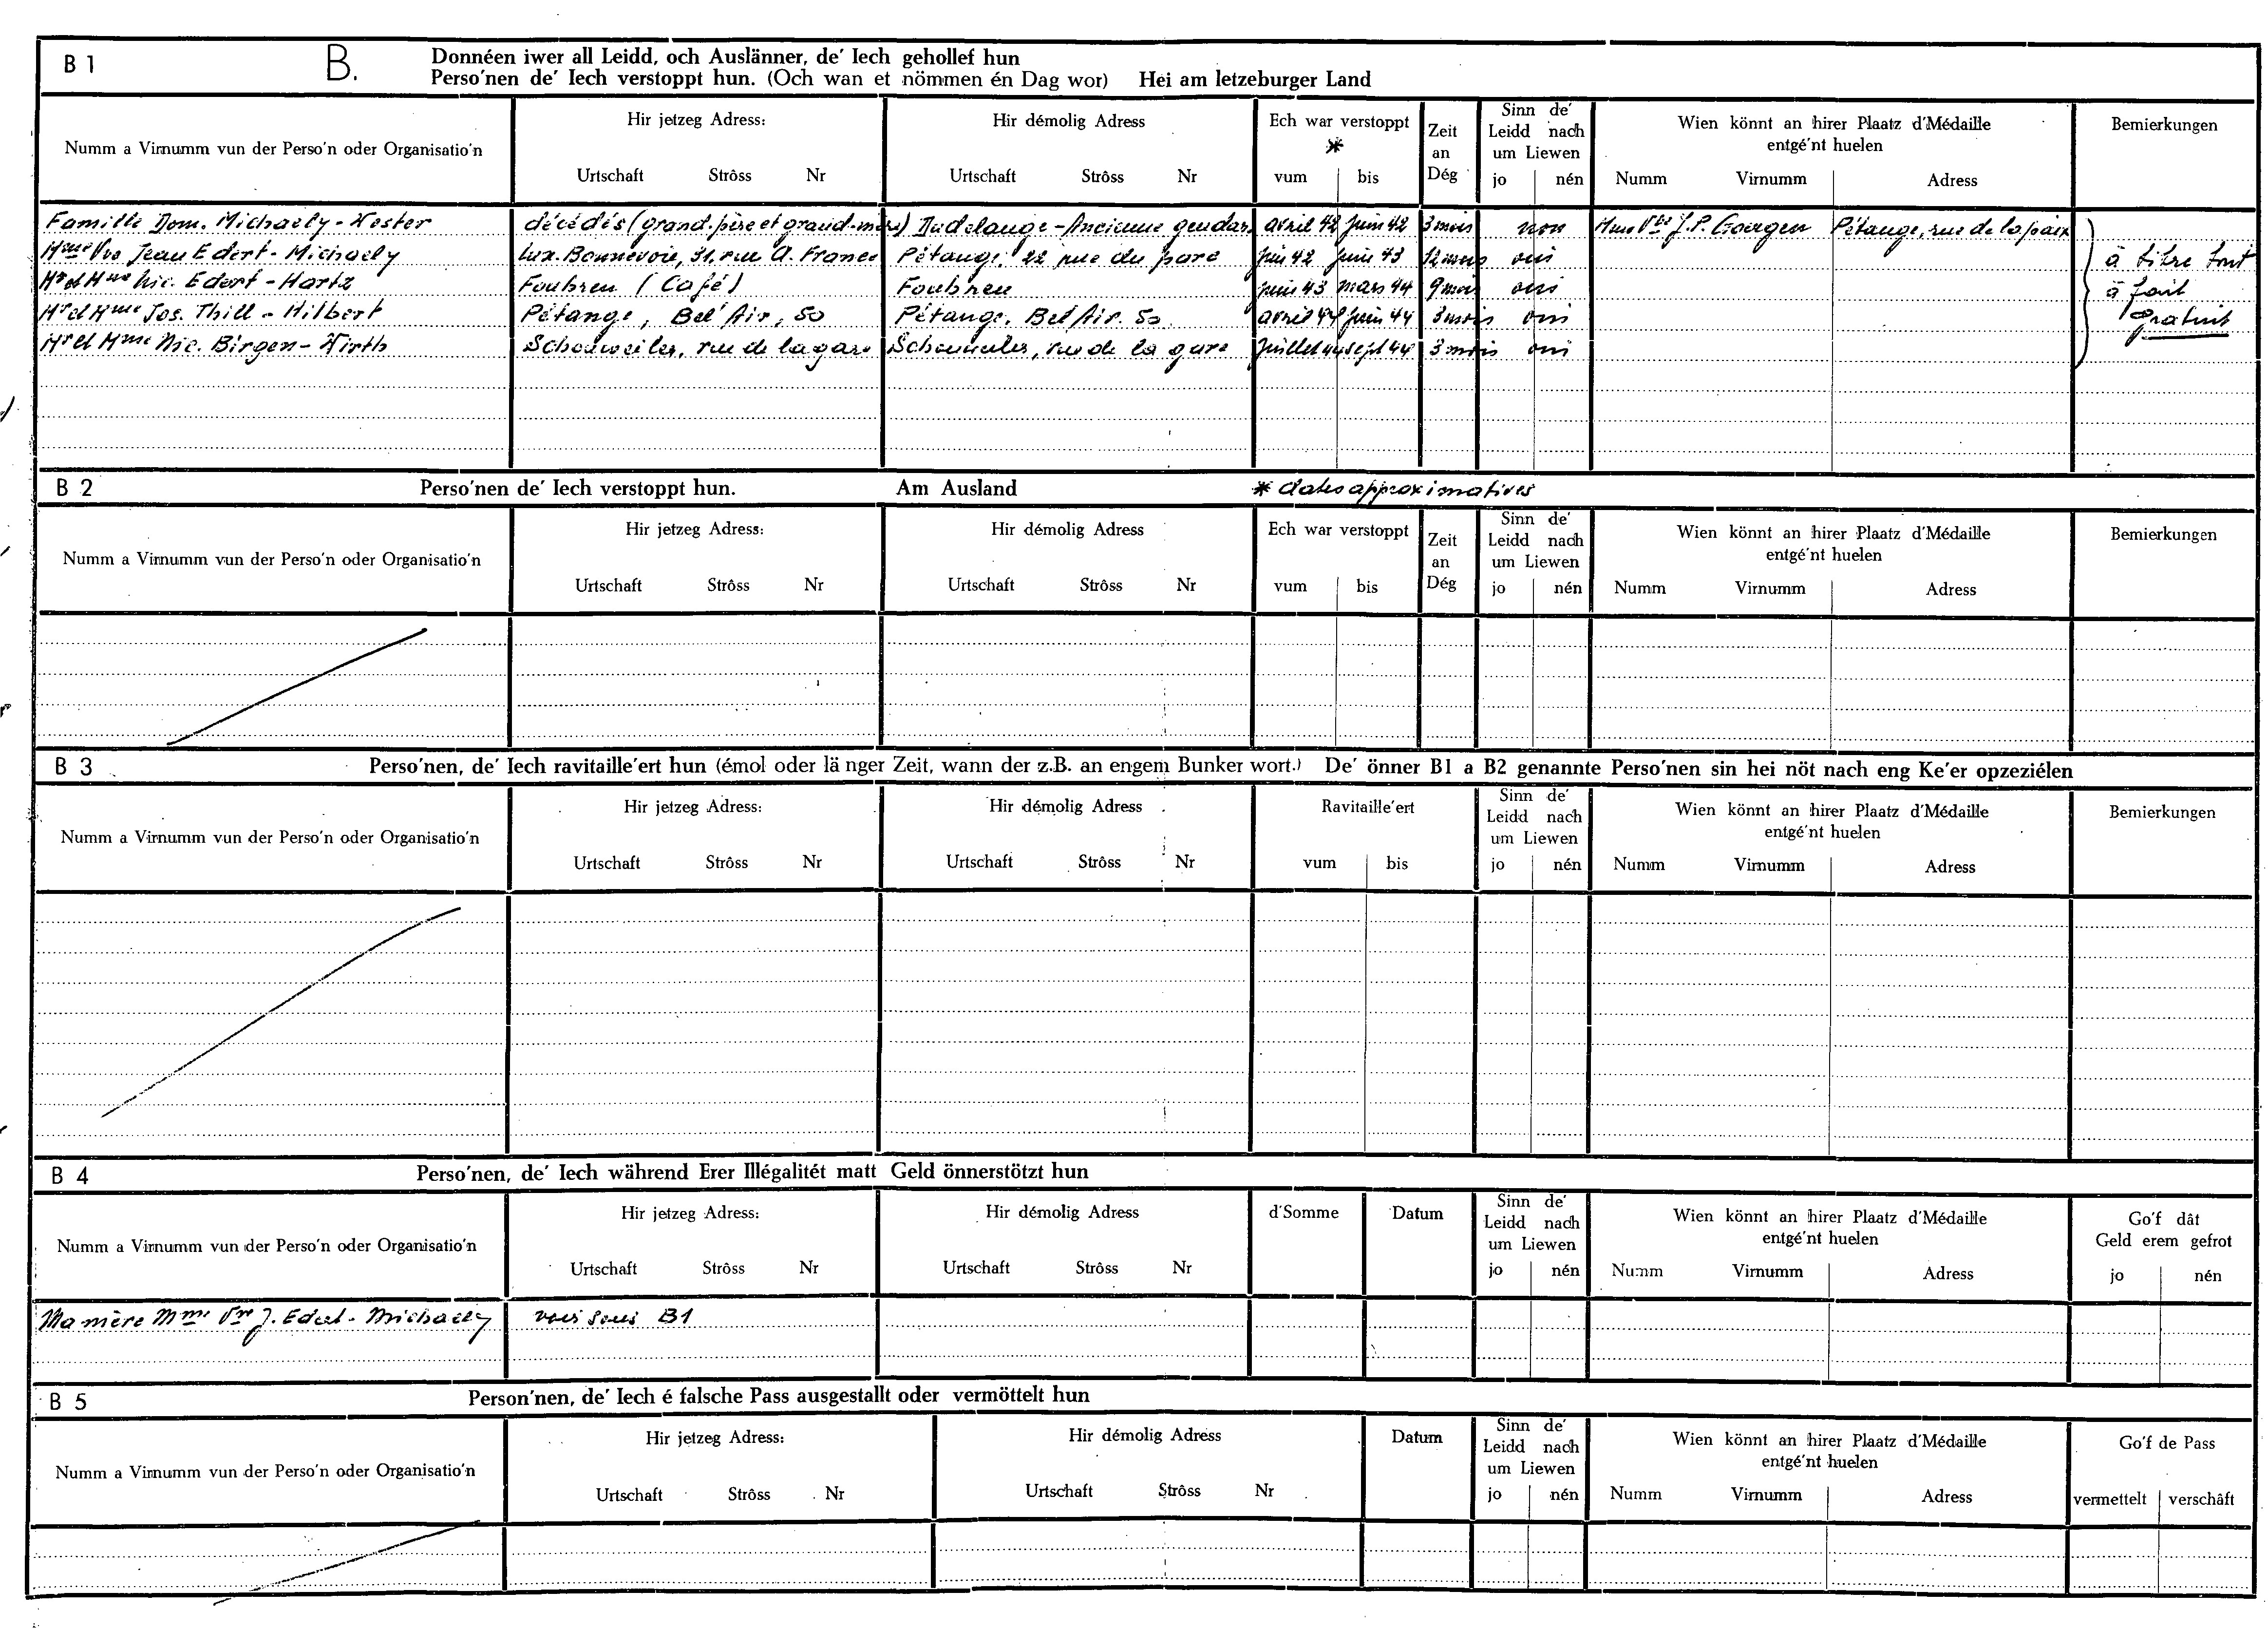 B 1 B. Donnéen iwer all Leidd, och Auslänner, de' Iech gehollef hun
Perso'nen de' Iech verstoppt hun. (Och wan et nömmen én Dag wor) Hei am letzeburger Land
Numm a Virnumm vun der Perso'n oder Organisatio'n
Hir jetzeg Adress:
Urtschaft Strôss Nr
Hir démolig Adress
Urtschaft Strôss Nr
Ech war verstoppt
*
vum bis
Zeit
an
Dég
Sinn de'
Leidd nach
um Liewen
jo nén
Wien könnt an hirer Plaatz d'Médaille
entgé'nt huelen
Numm Virnumm Adress
Bemierkungen
Famille Dom. Michaely - Wester décédés (grand-père et grand-mère) Dudelange - Ancienne gendar. avril 42 juin 42 3 mois non Mme Vve J.P. Goergen Pétange, rue de la paix
Mme Vve Jean Edert - Michaely Lux. Bonnevoie, 31, rue A. France Pétange, 22 rue du parc juin 42 juin 43 12 mois oui
Mr et Mme Nic. Edert - Hartz Fouhren (Café) Fouhren juin 43 mars 44 9 mois oui
Mr et Mme Jos. Thill - Hilbert Pétange, Bel Air, 50 Pétange, Bel Air 50 avril 44 juin 44 3 mois oui
Mr et Mme Nic. Birgen - Wirth Schouweiler, rue de la gare Schouweiler, rue de la gare juillet 44 sept 44 3 mois oui
à titre tout
à fait
gratuit
B 2 Perso'nen de' Iech verstoppt hun. Am Ausland * dates approximatives
Numm a Virnumm vun der Perso'n oder Organisatio'n
Hir jetzeg Adress:
Urtschaft Strôss Nr
Hir démolig Adress
Urtschaft Strôss Nr
Ech war verstoppt
vum bis
Zeit
an
Dég
Sinn de'
Leidd nach
um Liewen
jo nén
Wien könnt an hirer Plaatz d'Médaille
entgé'nt huelen
Numm Virnumm Adress
Bemierkungen
B 3 Perso'nen, de' Iech ravitaille'ert hun (émol oder länger Zeit, wann der z.B. an engem Bunker wort.) De' önner B1 a B2 genannte Perso'nen sin hei nöt nach eng Ke'er opzeziélen
Numm a Virnumm vun der Perso'n oder Organisatio'n
Hir jetzeg Adress:
Urtschaft Strôss Nr
Hir démolig Adress
Urtschaft Strôss Nr
Ravitaille'ert
vum bis
Sinn de'
Leidd nach
um Liewen
jo nén
Wien könnt an hirer Plaatz d'Médaille
entgé'nt huelen
Numm Virnumm Adress
Bemierkungen
B 4 Perso'nen, de' Iech während Erer Illégalitét matt Geld önnerstötzt hun
Numm a Virnumm vun der Perso'n oder Organisatio'n
Hir jetzeg Adress:
Urtschaft Strôss Nr
Hir démolig Adress
Urtschaft Strôss Nr
d'Somme
Datum
Sinn de'
Leidd nach
um Liewen
jo nén
Wien könnt an hirer Plaatz d'Médaille
entgé'nt huelen
Numm Virnumm Adress
Go'f dât
Geld erem gefrot
jo nén
Ma mère Mme Vve J. Edert - Michaely voir sous B1
B 5 Person'nen, de' Iech é falsche Pass ausgestallt oder vermöttelt hun
Numm a Virnumm vun der Perso'n oder Organisatio'n
Hir jetzeg Adress:
Urtschaft Strôss Nr
Hir démolig Adress
Urtschaft Strôss Nr
Datum
Sinn de'
Leidd nach
um Liewen
jo nén
Wien könnt an hirer Plaatz d'Médaille
entgé'nt huelen
Numm Virnumm Adress
Go'f de Pass
vermettelt verschâft